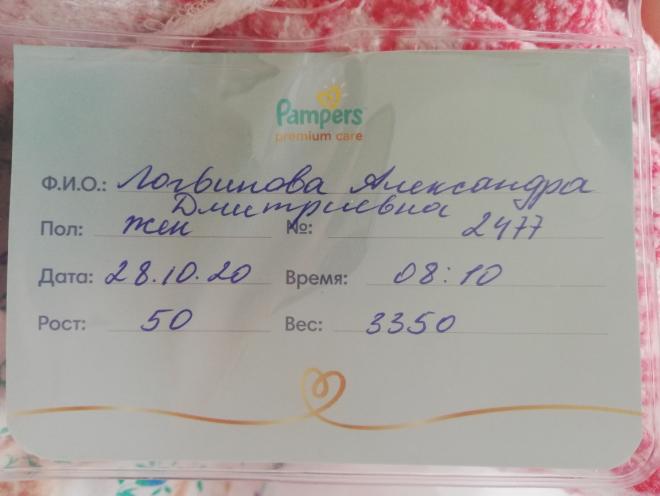 Pampers
premium care
Ф.И.О.: Логвинова Александра
Дмитриевна
Пол: жен №: 2477
Дата: 28.10.20 Время: 08:10
Рост: 50 Вес: 3350